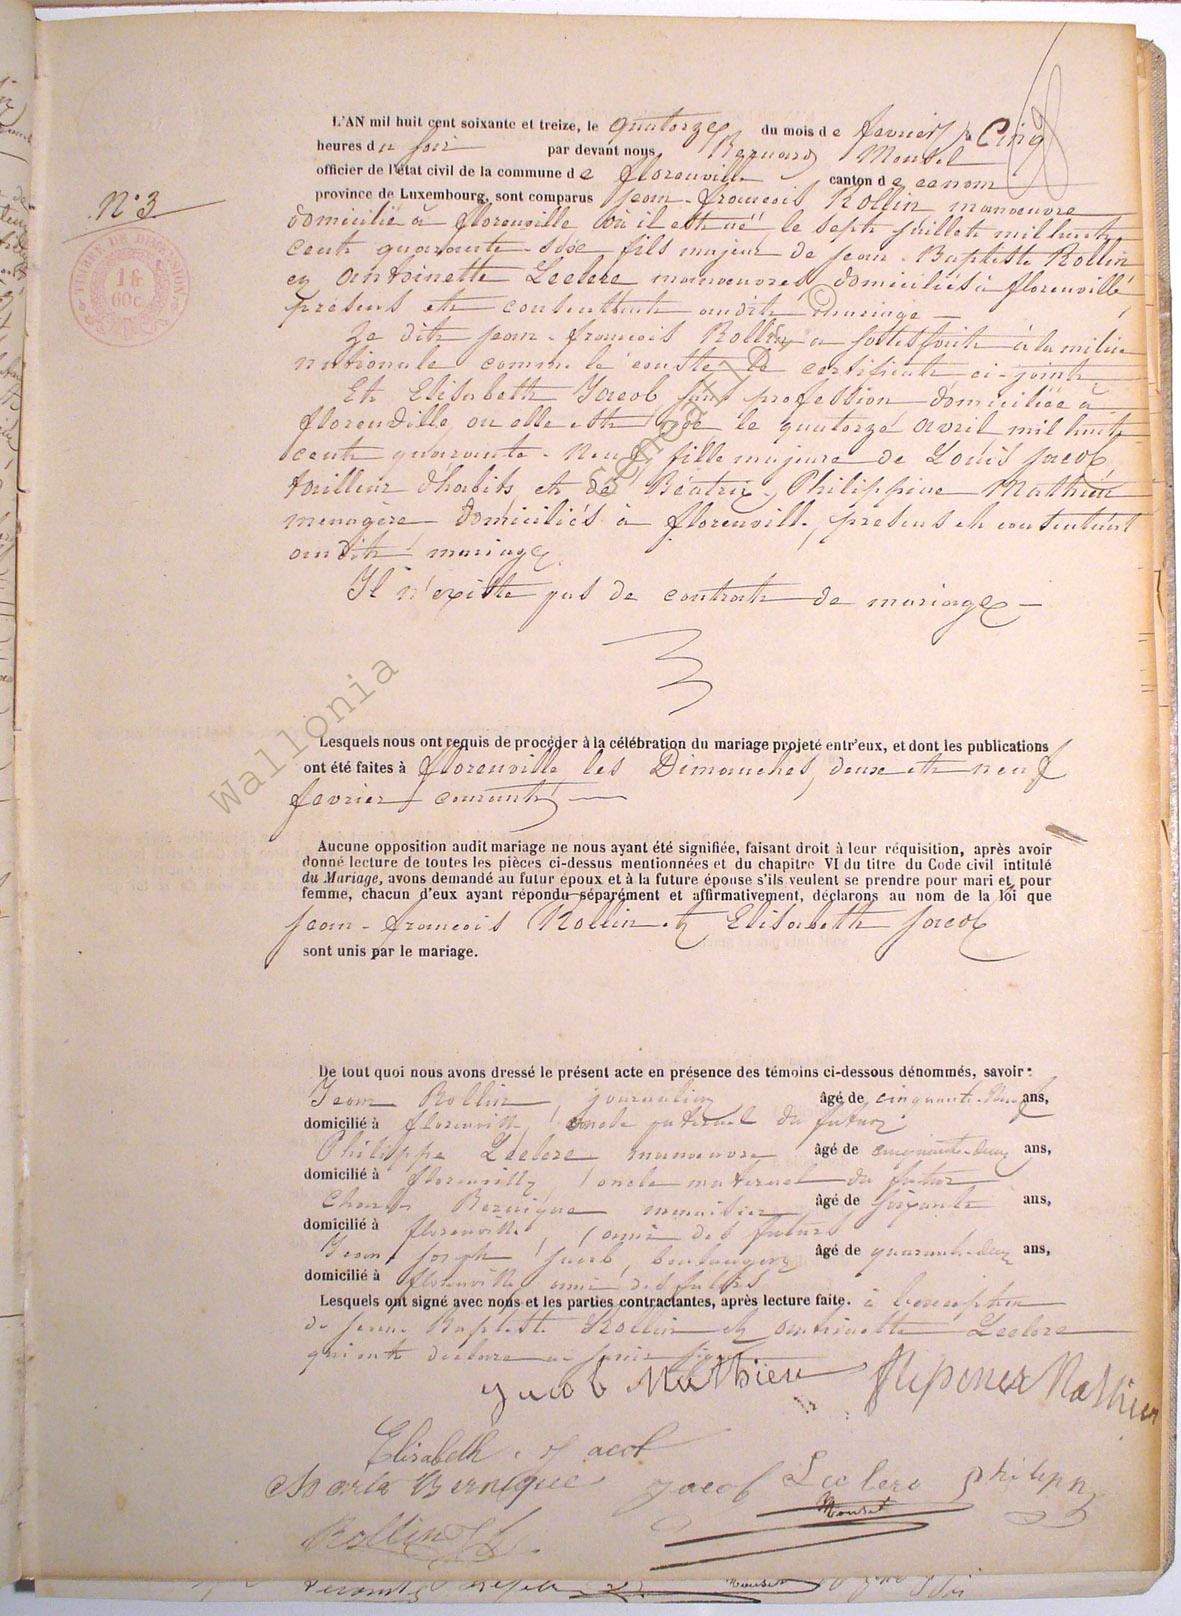 L'AN mil huit cent soixante et treize, le quatorze du mois de fevrier, à Cinq
heures du soir par devant nous Bernard Mousel
officier de l'état civil de la commune de florenville canton de
province de Luxembourg, sont comparus Jean-francois Rollin manoeuvre
N° 3
domicilié à florenville où il est né le sept juillet mil huit
cent quarante-six fils majeur de Jean-Baptiste Rollin
et Antoinette Leclere manoeuvres, domiciliés à florenville
présens et consentant audit mariage —
TIMBRE DE DIMENSION
1 fr
60 c.
Le dit Jean-francois Rollin a satisfait à la milice
nationale comme le conste le certificat ci-joint
Et Elisabeth Jacob sans profession domiciliée à
florenville, ou elle est née le quatorze avril mil huit
cent quarante-neuf, fille majeure de Louis Jacob
tailleur d'habits et de Béatrix Philippine Mathieu
menagère domiciliés à florenville, présens et consentant
audit mariage.
Il n'existe pas de contrat de mariage —
Lesquels nous ont requis de procéder à la célébration du mariage projeté entr'eux, et dont les publications
ont été faites à florenville les Dimanches, deux et neuf
fevrier courant —
Aucune opposition audit mariage ne nous ayant été signifiée, faisant droit à leur réquisition, après avoir
donné lecture de toutes les pièces ci-dessus mentionnées et du chapitre VI du titre du Code civil intitulé
du Mariage, avons demandé au futur époux et à la future épouse s'ils veulent se prendre pour mari et pour
femme, chacun d'eux ayant répondu séparément et affirmativement, déclarons au nom de la loi que
Jean-francois Rollin et Elisabeth Jacob
sont unis par le mariage.
De tout quoi nous avons dressé le présent acte en présence des témoins ci-dessous dénommés, savoir :
Jean Rollin, journalier âgé de cinquante-neuf ans,
domicilié à florenville, oncle paternel du futur
Philippe Leclere manoeuvre âgé de cinquante-deux ans,
domicilié à florenville, oncle maternel du futur
Charles Bernique menuisier âgé de soixante ans,
domicilié à florenville, ami des futurs
Jean Joseph Jacob, boulanger âgé de quarante-deux ans,
domicilié à florenville ami des futurs
Lesquels ont signé avec nous et les parties contractantes, après lecture faite. à l'exception
de Jean Baptiste Rollin et Antoinette Leclere
qui ont declaré ne savoir signer
Jacob Mathieu Mathieu
Elisabeth Jacob
Bernique Jacob Leclere Philipp
Mousel
Rollin
Wallonia
Geneanet ©